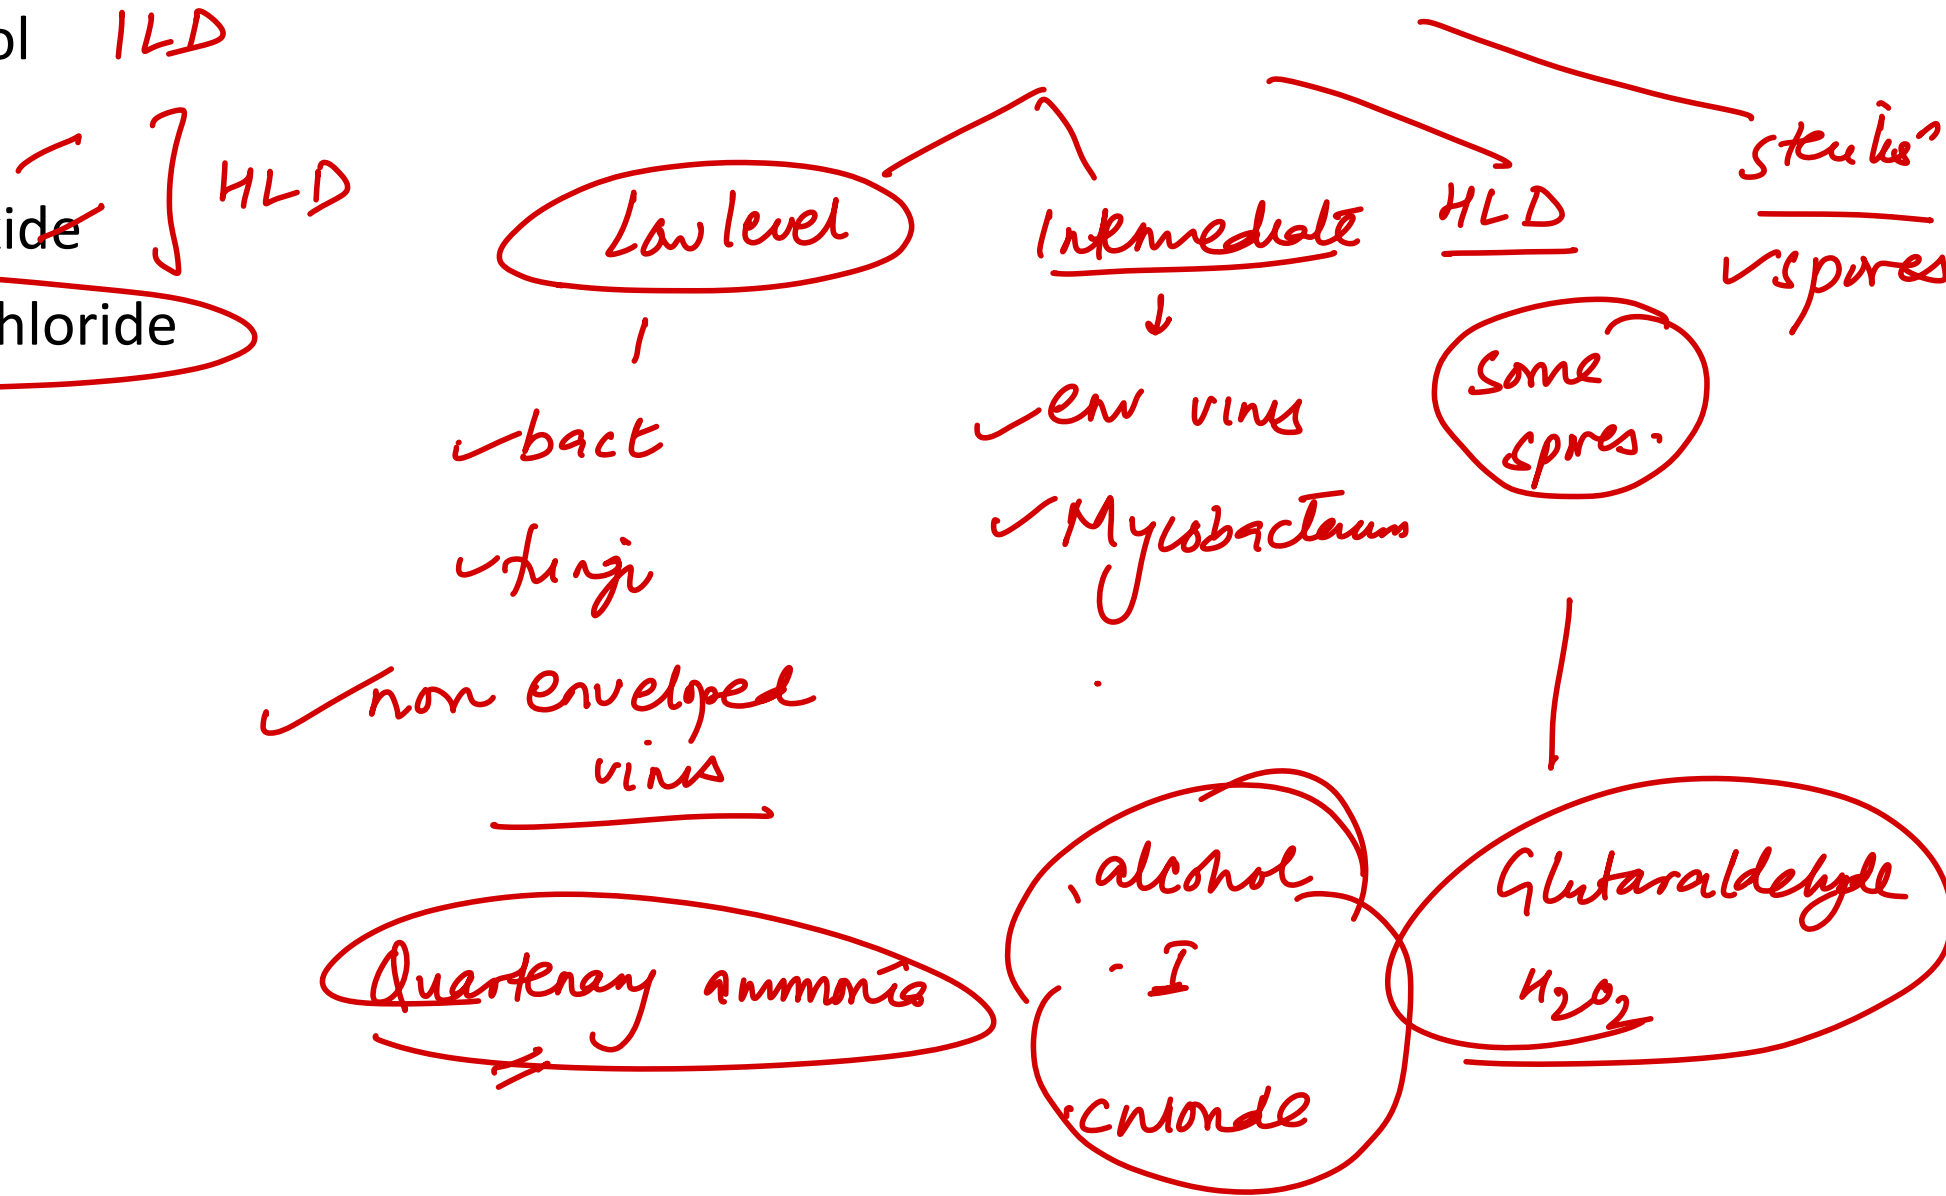 ol ILD
HLD
ide
hloride
Low level
bact
fungi
non enveloped
virus
Quartenary ammonia
Intermediate
env virus
Mycobacterium
alcohol
I
chloride
HLD
Some
spores.
Glutaraldehyde
H2O2
sterilis
spores